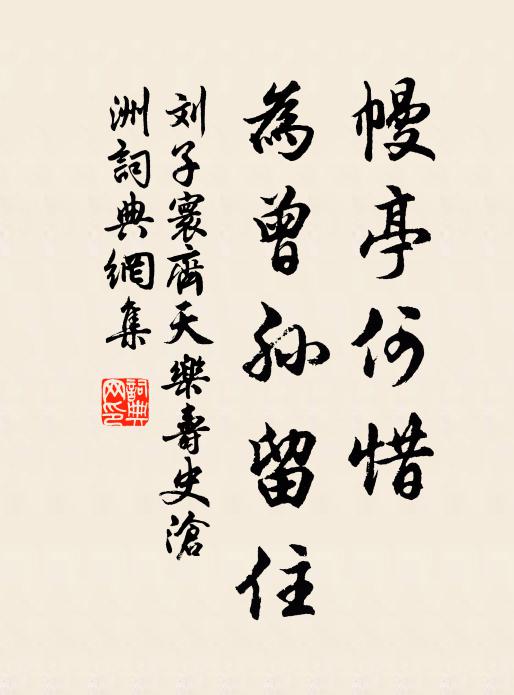 幔亭何惜
為曾孫留住
刘子寰齊天樂壽史滄
洲詞典網集
詞典
网印